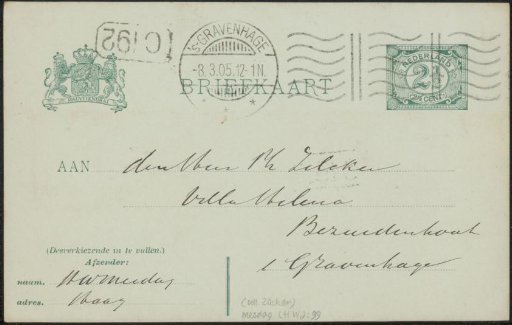 C192
'S-GRAVENHAGE
-8.3.05.12-1N.
BRIEFKAART
NEDERLAND
2½
CENT
AAN
den Heer Ph Zilcken
Villa Helena
Bezuidenhout
s Gravenhage
(Desverkiezende in te vullen.)
Afzender:
naam. HWMesdag
adres. Haag
(aan Zilcken)
mesdag (H.W.): 99